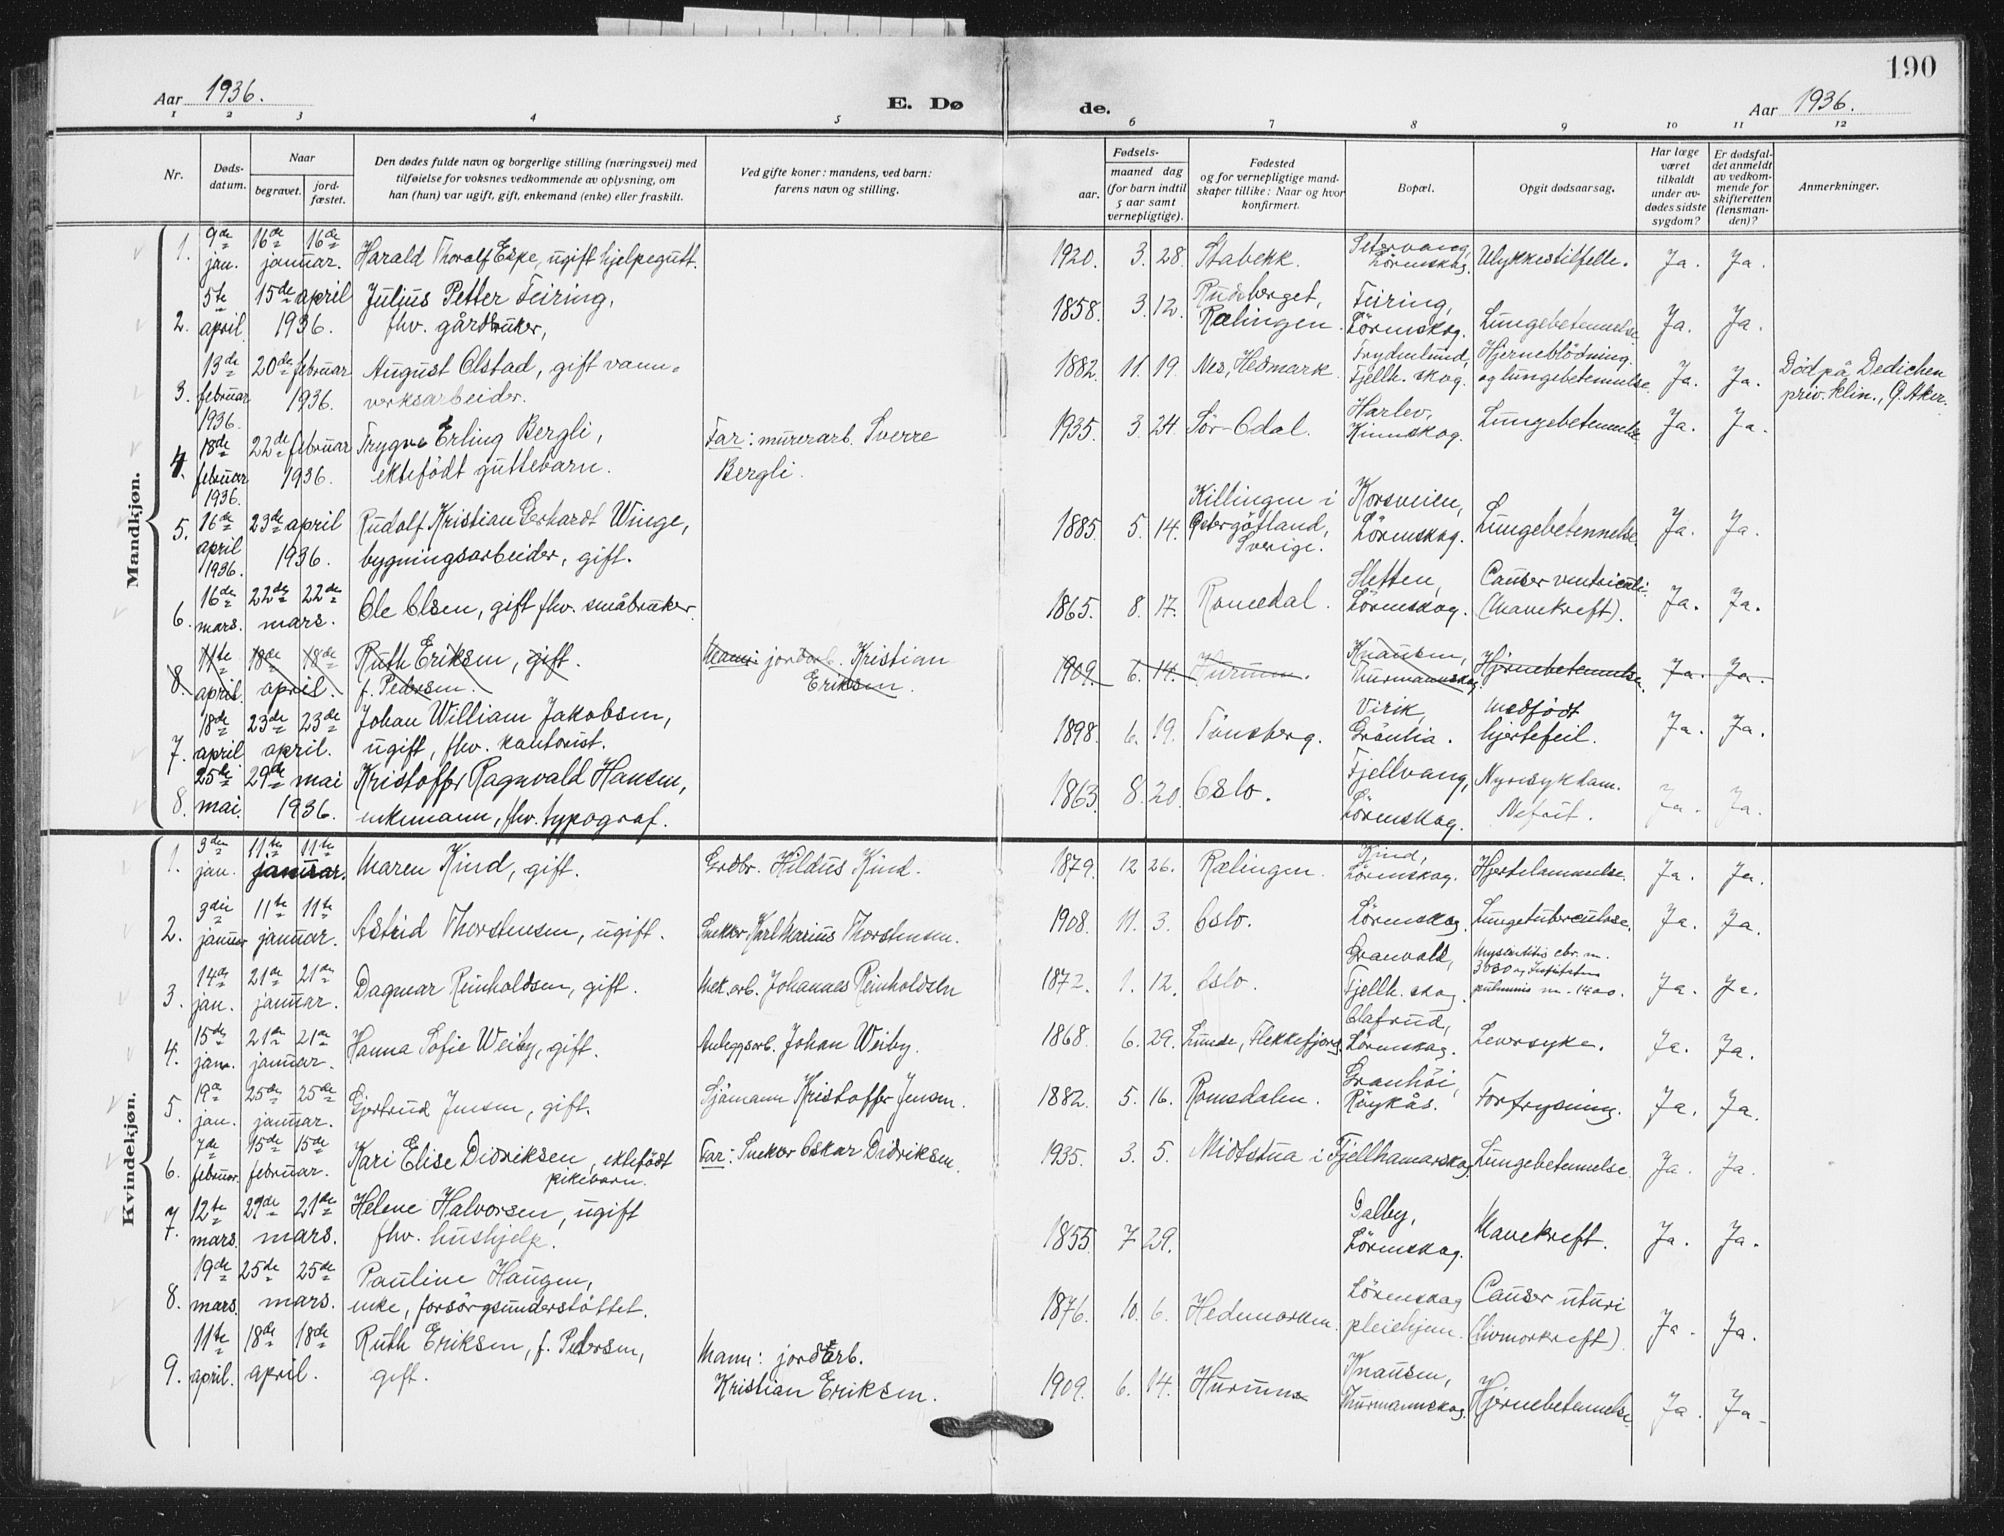 190
Aar 1936. E. Dø de. Aar 1936.
1 2 3 4 5 6 7 8 9 10 11 12
Nr.
Døds-
datum.
Naar
begravet.
jord-
fæstet.
Den dødes fulde navn og borgerlige stilling (næringsvei) med
tilføielse for voksnes vedkommende av oplysning, om
han (hun) var ugift, gift, enkemand (enke) eller fraskilt.
Ved gifte koner: mandens, ved barn:
farens navn og stilling.
Fødsels-
aar.
maaned dag
(for barn indtil
5 aar samt
vernepligtige).
Fødested
og for vernepligtige mand-
skaper tillike: Naar og hvor
konfirmert.
Bopæl.
Opgit dødsaarsag.
Har læge
været
tilkaldt
under av-
dødes sidste
sygdom?
Er dødsfal-
det anmeldt
av vedkom-
mende for
skifteretten
(lensman-
den)?
Anmerkninger.
Mandkjøn.
1. 9de 16de 16de Harald Thoralf Espe, ugift hjelpegutt. 1920. 3. 28. Stabekk. Setervang, Ulykkestilfelle. Ja. Ja.
jan. januar. Lörenskog.
5te 15de april Julius Petter Feiring, 1858. 3. 12. Rudsberget, Feiring, Lungebetennelse Ja. Ja.
2. april 1936. fhv. gårdbruker, Rælingen. Lörenskog.
13de 20de februar August Olstad, gift vann- 1882. 11. 19. Nes, Hedmark. Frydenlund, Hjerneblödning. Ja. Ja. Död på Dedichen
3. februar 1936. verksarbeider. Fjellh. skog. og lungebetennelse. priv. klin., Ö. Aker.
1936.
18de 22de februar Trygve Erling Bergli, Far: murerarb. Sverre 1935. 3. 24. Sör-Odal. Harlev, Lungebetennelse Ja. Ja.
4. februar 1936. ektefödt guttebarn. Bergli. Kinnskog.
1936.
5. 16de 23de april Rudolf Kristian Gerhardt Winge, 1885. 5. 14. Killingen i Korsveien, Lungebetennelse. Ja. Ja.
april 1936. bygningsarbeider, gift. Östergötland, Lörenskog.
1936. Sverige.
16de 22de 22de Ole Olsen, gift fhv. småbruker. 1865. 8. 17. Romedal. Sletten, Cancer ventriculi Ja. Ja.
6. mars. mars. Lörenskog. (Mavekreft).
11te 18de 18de Ruth Eriksen, gift. Mann: jordarb. Kristian 1909. 6. 14. Hurum. Knausen, Hjernebetennelse. Ja. Ja.
8. april. april. f. Pedersen. Eriksen. Thurmannskog.
18de 23de 23de Johan William Jakobsen, 1898. 6. 19. Tönsberg. Virik, Medfödt Ja. Ja.
7. april april. ugift, fhv. kontorist. Grönlia. hjertefeil.
25de 29de mai Kristoffer Ragnvald Hansen, 1863. 8. 20. Oslo. Fjellvang, Nyresykdom. Ja. Ja.
8. mai. 1936. enkemann, fhv. typograf. Lörenskog. Nefrit.
Kvindekjøn.
1. 3den 11te 11te Maren Kind, gift. Grdbr. Hildus Kind. 1879. 12 26. Rælingen. Kind, Hjertelammelse. Ja. Ja.
jan. januar. Lörenskog.
3die 11te 11te Astrid Thorstensen, ugift. Snekker Karl Marius Thorstensen. 1908. 11. 3. Oslo. Lörenskog. Lungetuberculose. Ja. Ja.
2. januar januar.
14de 21de 21de Dagmar Reinholdsen, gift. Mek. arb. Johannes Reinholdsen 1872. 1. 12. Oslo. Granvold, Ja. Ja.
3. jan. januar. Fjellh. skog. pulmonis
15de 21de 21de Hanna Sofie Weiby, gift. Anleggsarb. Johan Weiby. 1868. 6. 29. Lunde, Flekkefjord. Olafrud, Leversyke. Ja. Ja.
4. jan. januar. Lörenskog.
19de 25de 25de Gjertrud Jensen, gift. Sjömann Kristoffer Jensen. 1882. 5. 16. Romsdalen. Granhöi, Forfrysning. Ja. Ja.
5. jan. januar. Röykås.
7de 15de 15de Kari Elise Didriksen, ektefödt Far: Snekker Oskar Didriksen. 1935. 3. 5. Midtstua i Fjellhamarskog. Lungebetennelse Ja. Ja.
6. februar. februar. pikebarn.
12te 29de 21de Helene Halvorsen, ugift 1855. 7 29. Dalby, Mavekreft. Ja. Ja.
7. mars. mars. fhv. hushjelp. Lörenskog.
19de 25de 25de Pauline Haugen, 1876. 10. 6. Hedemarken. Lörenskog Cancer uteri Ja. Ja.
8. mars. mars. enke, forsörgsunderstöttet. pleiehjem. (livmorkreft)
11te 18de 18de Ruth Eriksen, f. Pedersen, Mann: jordarb. 1909. 6. 14. Hurum Knausen, Hjernebetennelse. Ja. Ja.
9. april. april. gift. Kristian Eriksen. Thurmannskog.